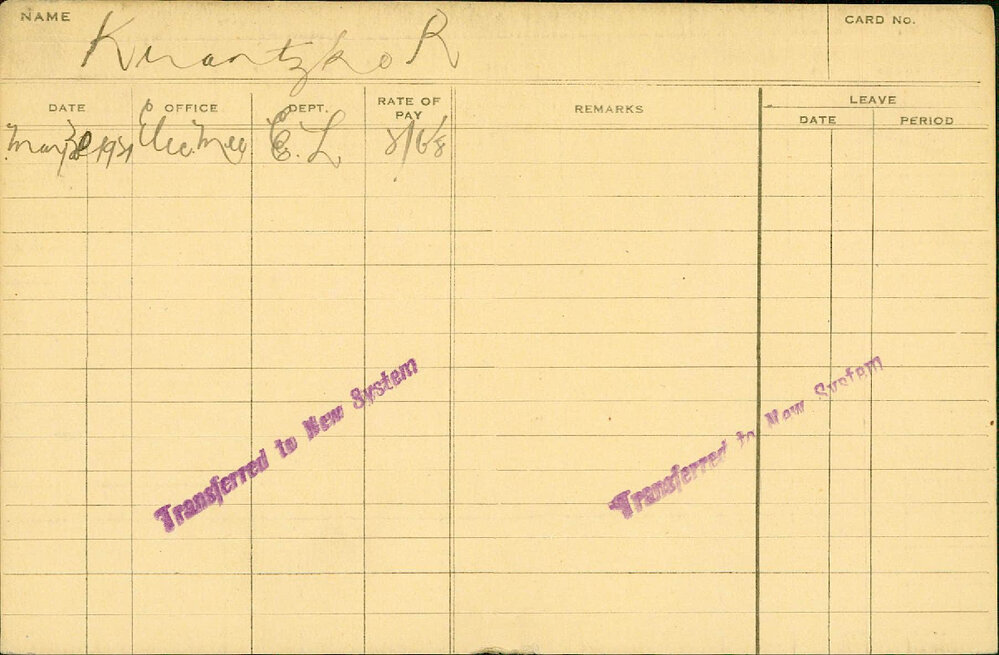 NAME
R
CARD No.
DATE OFFICE DEPT. RATE OF PAY REMARKS LEAVE
DATE PERIOD
1931 Elec. Mec E. L
Transferred to New System
Transferred to New System